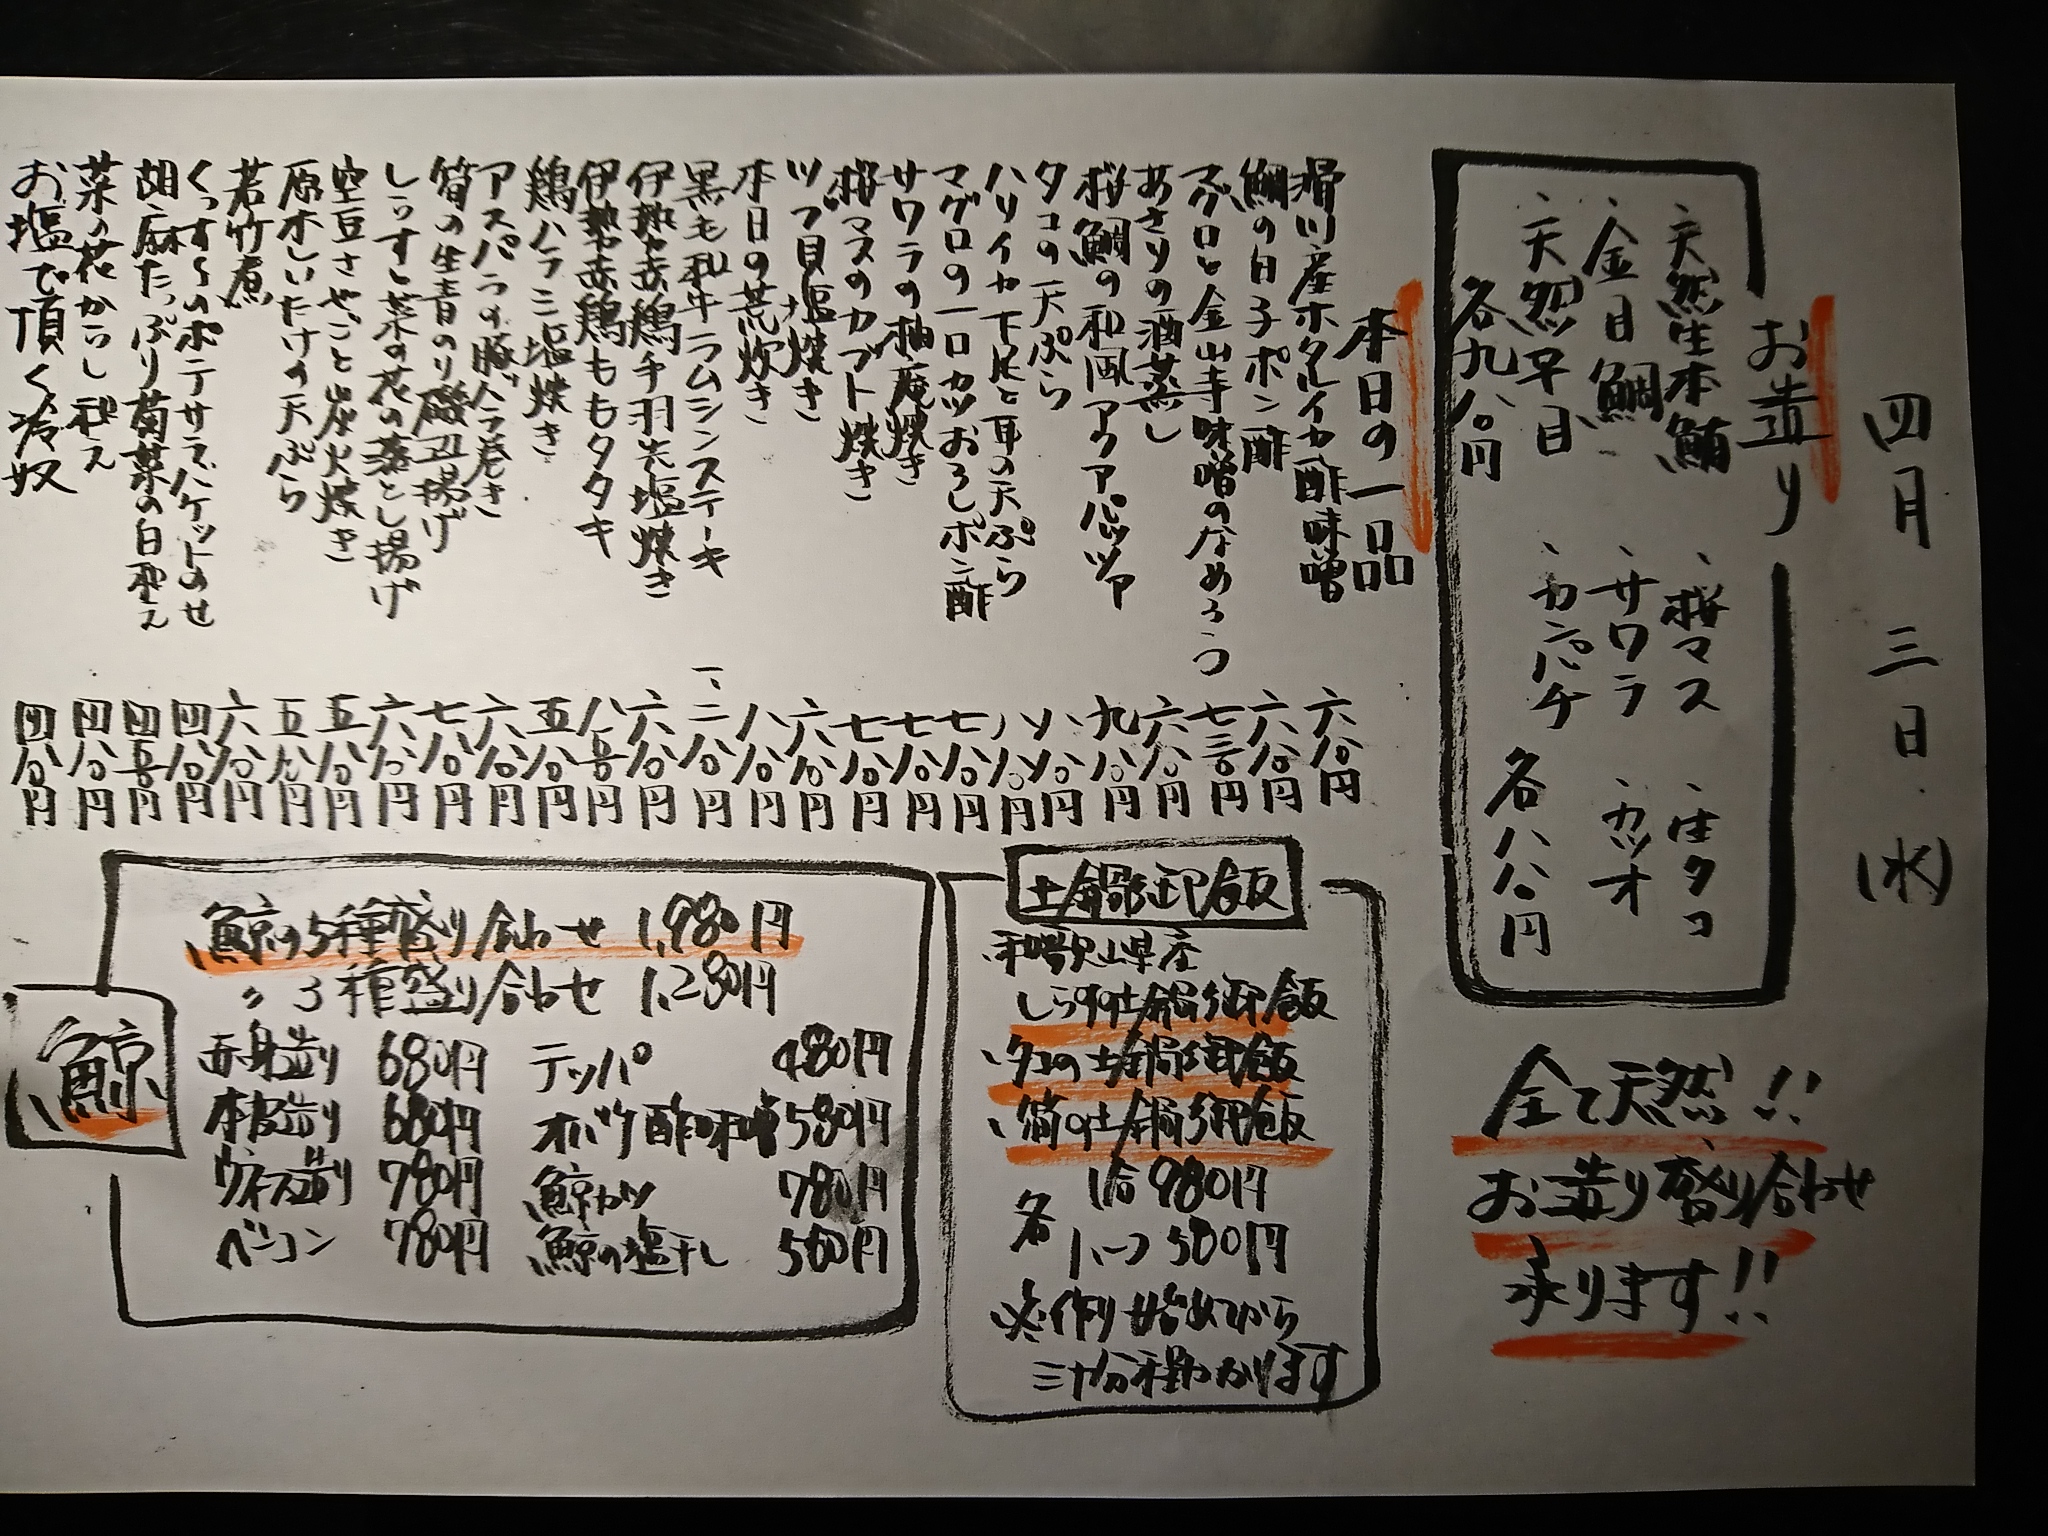 四月三日(水)
お造り
、天然生本鮪
、桜マス
、生タコ
、金目鯛
、サワラ
、カツオ
、天然平目
、カンパチ
各九八〇円
各八八〇円
全て天然!!
お造り盛り合わせ
承ります!!
本日の一品
滑川産ホタルイカ酢味噌 六八〇円
鯛の白子ポン酢 六八〇円
マグロと金山寺味噌のなめろう 七三〇円
あさりの酒蒸し 六八〇円
桜鯛の和風アクアパッツァ 九八〇円
タコの天ぷら 八八〇円
ハリイカ下足と耳の天ぷら 八八〇円
マグロの一口カツおろしポン酢 七八〇円
サワラの柚庵焼き 七八〇円
桜マスのカブト焼き 七八〇円
ツブ貝塩焼き 六八〇円
本日の荒炊き 八八〇円
黒毛和牛ラムシンステーキ 一、二八〇円
伊勢赤鶏手羽先塩焼き 六八〇円
伊勢赤鶏ももタタキ 八五〇円
鶏ハラミ塩焼き 五八〇円
アスパラの豚バラ巻き 六八〇円
筍の生青のり磯辺揚げ 七八〇円
しらすと菜の花の落とし揚げ 六八〇円
空豆さやごと炭火焼き 五八〇円
原木しいたけの天ぷら 五八〇円
若竹煮 六八〇円
くっすんのポテサラバケットのせ 四八〇円
胡麻たっぷり菊菜の白和え 四五〇円
菜の花からし和え 四八〇円
お塩で頂く冷奴 四八〇円
土鍋御飯
和歌山県産
しらすの土鍋御飯
、タコの土鍋御飯
、筍の土鍋御飯
各 1合 980円
ハーフ 500円
※作り始めてから
三十分程かかります
鯨
鯨の5種盛り合わせ 1,980円
〃 3種盛り合わせ 1,280円
赤身造り 680円 テッパ 480円
本皮造り 680円 オバケ酢味噌 580円
ウネス造り 780円 鯨カツ 780円
ベーコン 780円 鯨の塩干し 560円